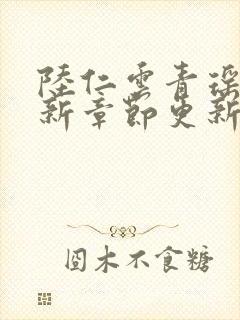 陸仁雲青瑤
新章節更新
囧木不食糖